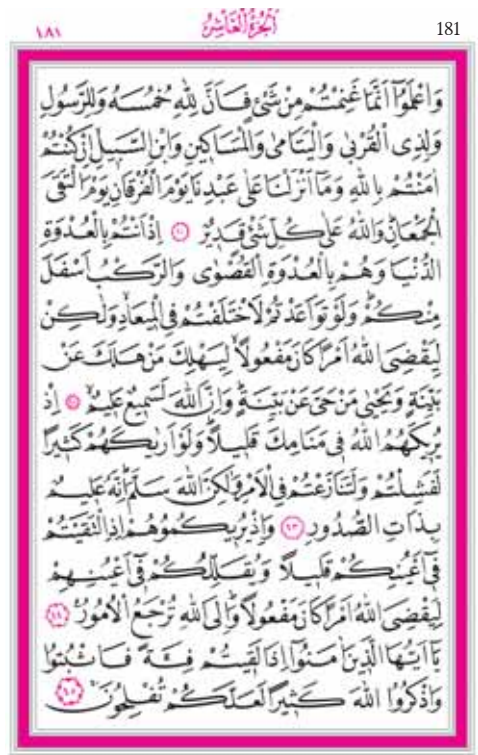 ١٨١ اَلْجُزْءُ الْعَاشِرُ 181
وَاعْلَمُٓوا اَنَّمَا غَنِمْتُمْ مِنْ شَيْءٍ فَاَنَّ لِلّٰهِ خُمُسَهُ وَلِلرَّسُولِ
وَلِذِي الْقُرْبٰى وَالْيَتَامٰى وَالْمَسَاك۪ينِ وَابْنِ السَّب۪يلِ اِنْ كُنْتُمْ
اٰمَنْتُمْ بِاللّٰهِ وَمَٓا اَنْزَلْنَا عَلٰى عَبْدِنَا يَوْمَ الْفُرْقَانِ يَوْمَ الْتَقَى
الْجَمْعَانِ وَاللّٰهُ عَلٰى كُلِّ شَيْءٍ قَد۪يرٌ ﴿٤١﴾ اِذْ اَنْتُمْ بِالْعُدْوَةِ
الدُّنْيَا وَهُمْ بِالْعُدْوَةِ الْقُصْوٰى وَالرَّكْبُ اَسْفَلَ
مِنْكُمْ وَلَوْ تَوَاعَدْتُمْ لَاخْتَلَفْتُمْ فِي الْم۪يعَادِ وَلٰكِنْ
لِيَقْضِيَ اللّٰهُ اَمْرًا كَانَ مَفْعُولًا لِيَهْلِكَ مَنْ هَلَكَ عَنْ
بَيِّنَةٍ وَيَحْيٰى مَنْ حَيَّ عَنْ بَيِّنَةٍ وَاِنَّ اللّٰهَ لَسَم۪يعٌ عَل۪يمٌ ﴿٤٢﴾ اِذْ
يُر۪يكَهُمُ اللّٰهُ ف۪ي مَنَامِكَ قَل۪يلًا وَلَوْ اَرٰيكَهُمْ كَث۪يرًا
لَفَشِلْتُمْ وَلَتَنَازَعْتُمْ فِي الْاَمْرِ وَلٰكِنَّ اللّٰهَ سَلَّمَ اِنَّهُ عَل۪يمٌ
بِذَاتِ الصُّدُورِ ﴿٤٣﴾ وَاِذْ يُر۪يكُمُوهُمْ اِذِ الْتَقَيْتُمْ
ف۪ٓي اَعْيُنِكُمْ قَل۪يلًا وَيُقَلِّلُكُمْ ف۪ٓي اَعْيُنِهِمْ
لِيَقْضِيَ اللّٰهُ اَمْرًا كَانَ مَفْعُولًا وَاِلَى اللّٰهِ تُرْجَعُ الْاُمُورُ ﴿٤٤﴾
يَٓا اَيُّهَا الَّذ۪ينَ اٰمَنُٓوا اِذَا لَق۪يتُمْ فِئَةً فَاثْبُتُوا
وَاذْكُرُوا اللّٰهَ كَث۪يرًا لَعَلَّكُمْ تُفْلِحُونَ ﴿٤٥﴾